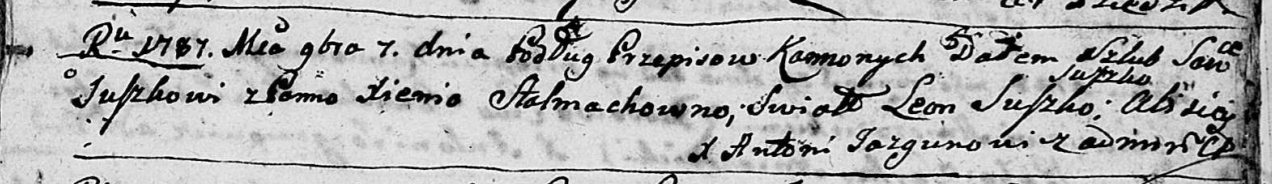 Ru 1787. Mca 9bra 7. dnia Podług Przepisow Kannonych Dałem Szlub Sawce
Suszkowi z Panno Xienio Stalmachowno, Swiatt Leon Suszko; Alisiej Suszko
X Antoni Jazgunowicz admin